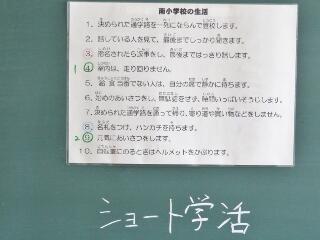 南小学校の生活
1. 決められた通学路を一列にならんで登校します。
2. 話している人を見て、最後までしっかり聞きます。
3. 指名されたら返事をし、最後まではっきり話します。
1 4. 室内は、走り回りません。
5. 給食当番でない人は、自分の席で静かに待ちます。
6. 始めのあいさつをし、無駄話をせず、時間いっぱいそうじします。
7. 決められた通学路を通って帰り、寄り道や買い物などをしません。
8. 名札をつけ、ハンカチを持ちます。
2 9. 元気にあいさつをします。
10. 自転車にのるときはヘルメットをかぶります。
ショート学活